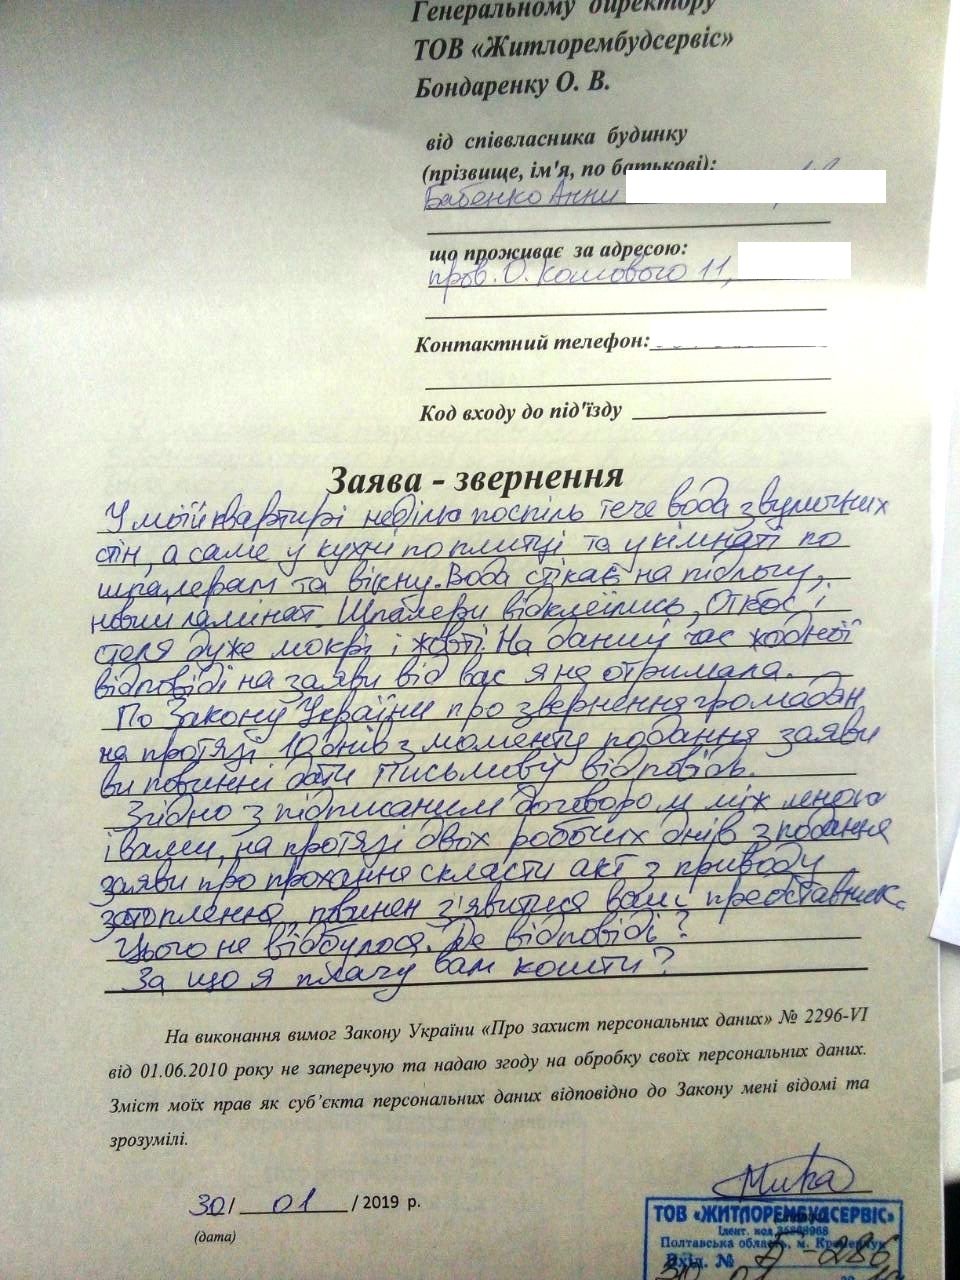 Генеральному директору
ТОВ «Житлорембудсервіс»
Бондаренку О. В.
від співвласника будинку
(прізвище, ім'я, по батькові):
Бабенко Анни
що проживає за адресою:
пров. О. Кошового 11,
Контактний телефон:
Код входу до під'їзду
Заява - звернення
У моїй квартирі неділю поспіль тече вода з вуличних
стін, а саме у кухні по плитці та у кімнаті по
шпалерам та вікну. Вода стікає на підлогу,
новий ламінат. Шпалери відклеїлись, Откос і
стеля дуже мокрі і жовті. На даний час жодної
відповіді на заяви від вас я не отримала.
По Закону України про звернення громадян
на протязі 10 днів з моменту подання заяви
ви повинні дати письмову відповідь.
Згідно з підписаним договором між мною
і вами, на протязі двох робочих днів з подання
заяви про прохання скласти акт з приводу
затоплення, повинен з'явитися ваш представник.
Цього не відбулося. Де відповіді?
За що я плачу вам кошти?
На виконання вимог Закону України «Про захист персональних даних» № 2296-VI
від 01.06.2010 року не заперечую та надаю згоду на обробку своїх персональних даних.
Зміст моїх прав як суб'єкта персональних даних відповідно до Закону мені відомі та
зрозумілі.
30 / 01 / 2019 р.
(дата)
ТОВ «ЖИТЛОРЕМБУДСЕРВІС»
Ідент. код
Полтавська область, м. Кременчук
Вхід. № -286